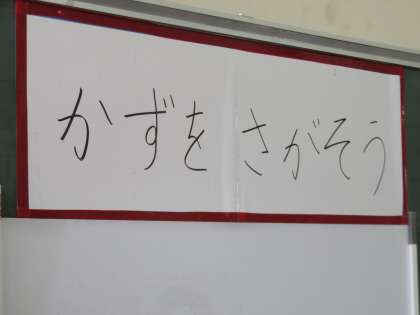 かずを さがそう